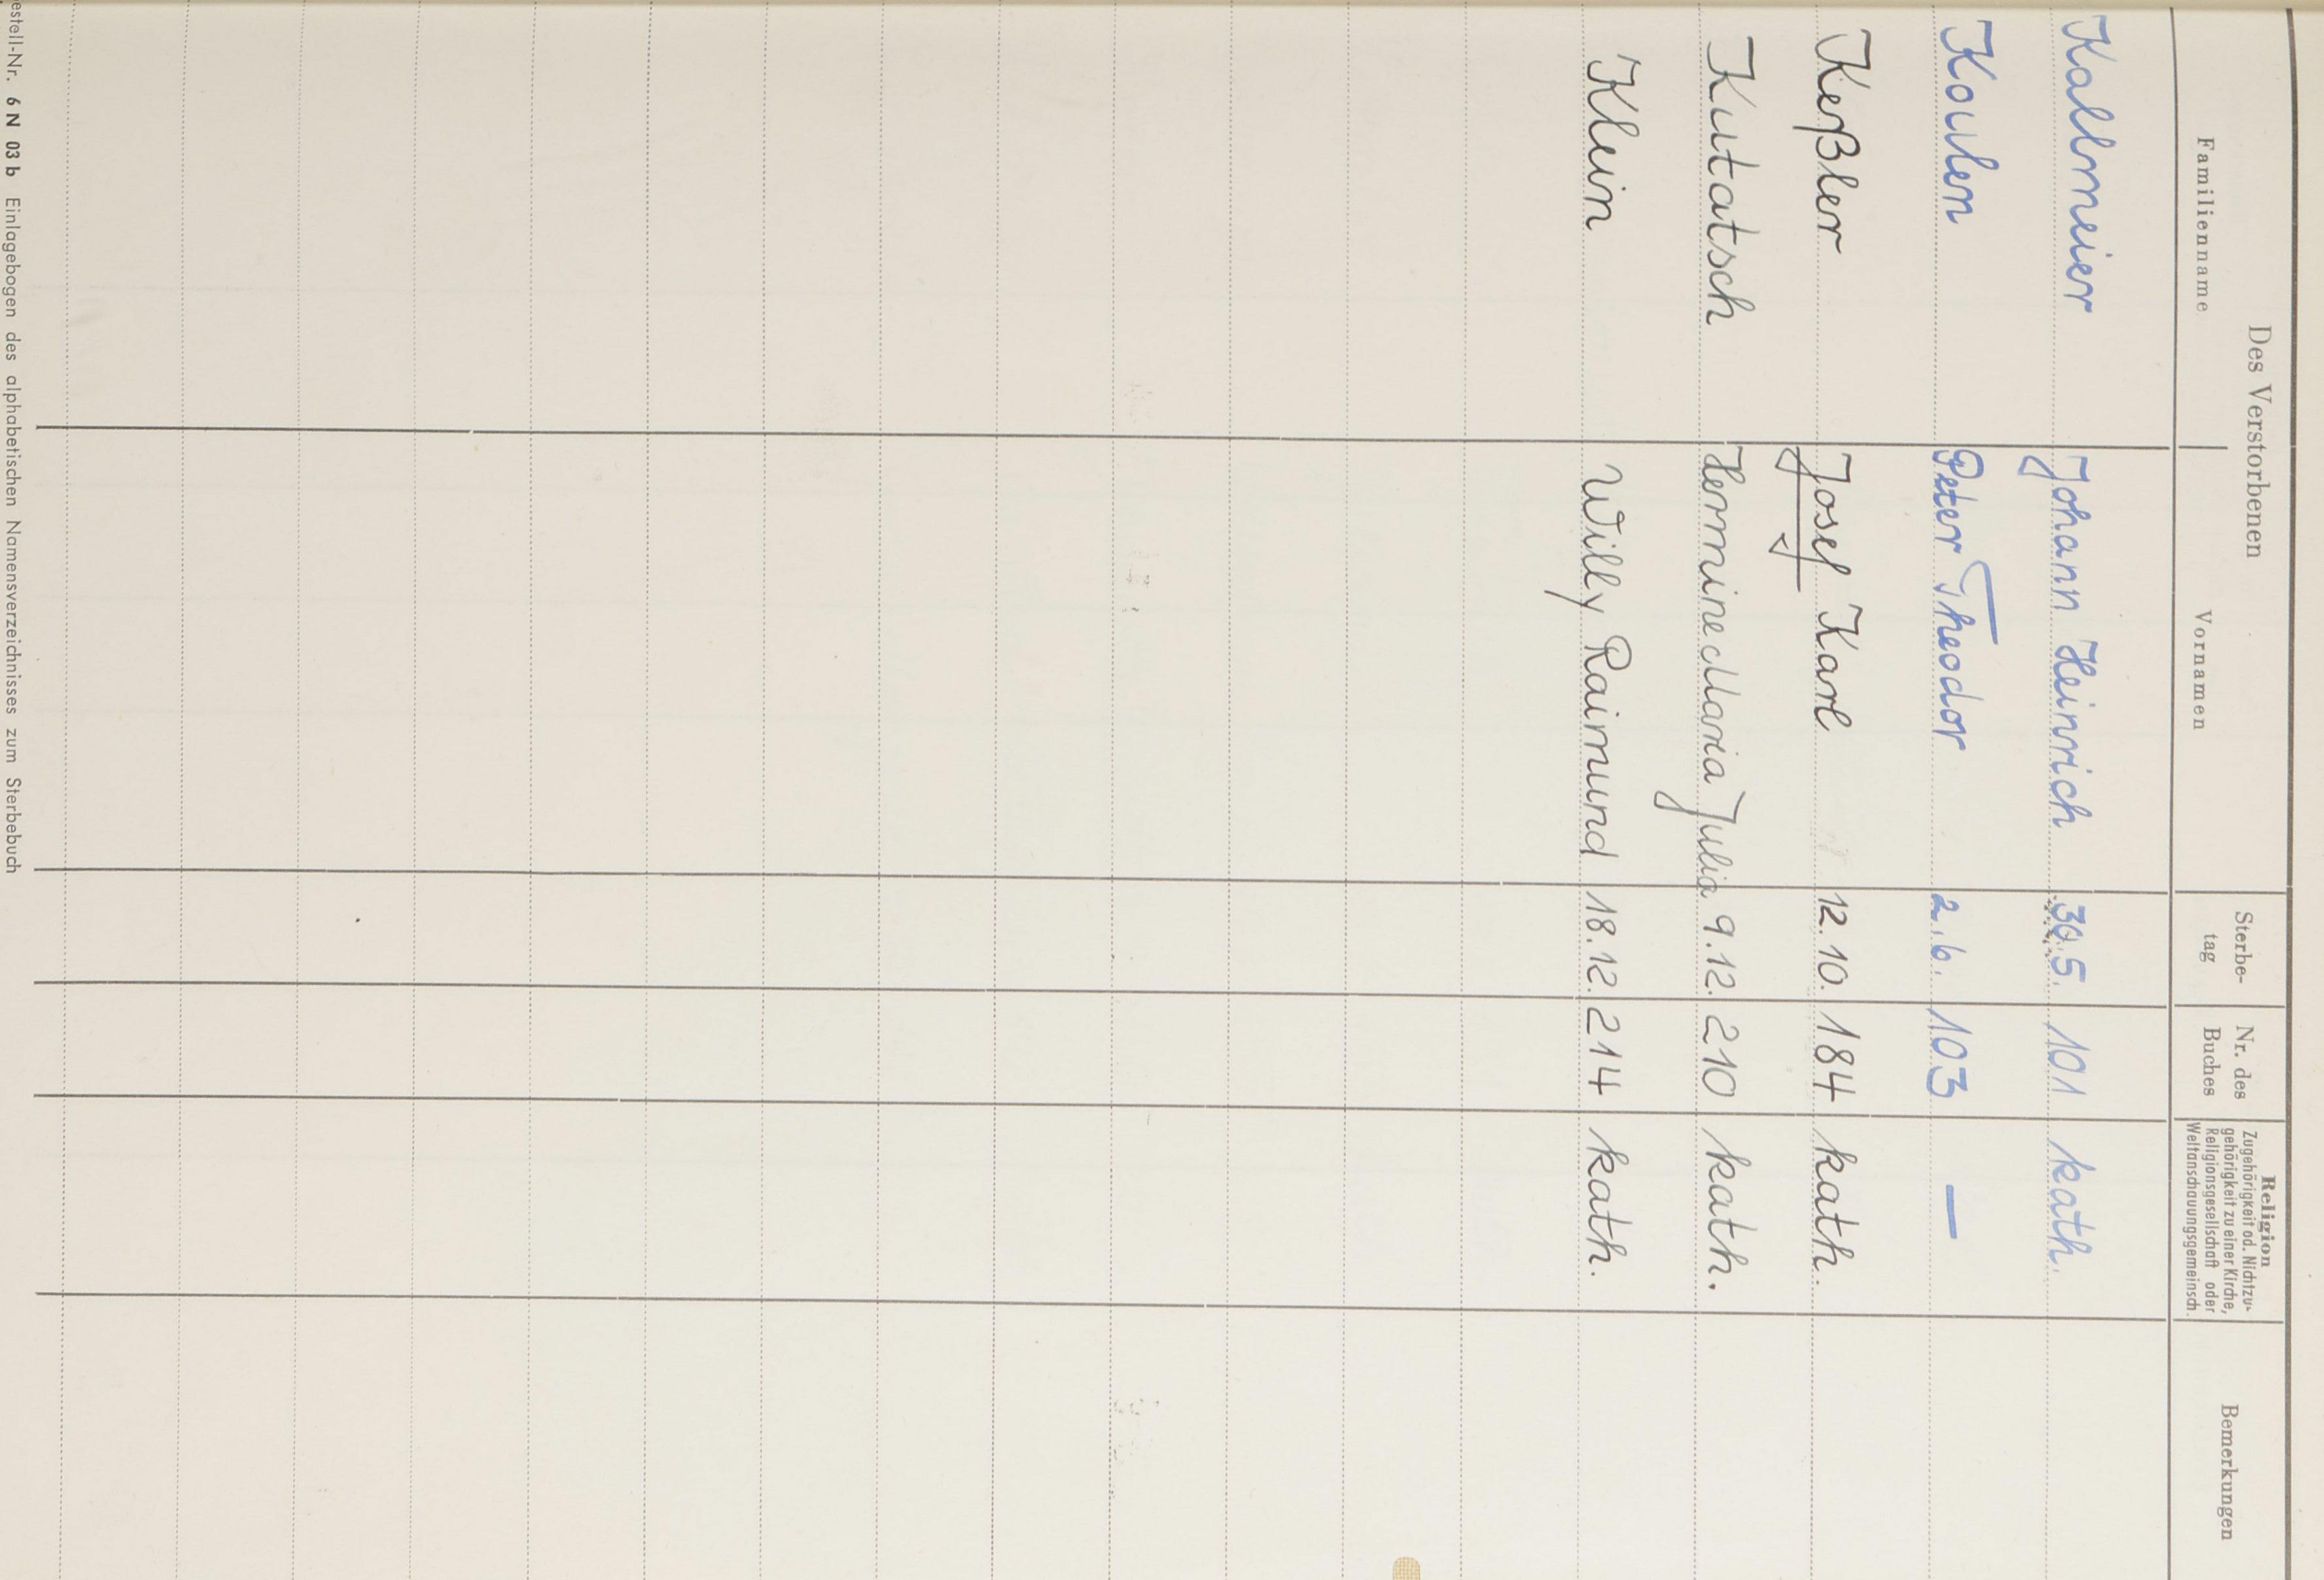 Des Verstorbenen
Familienname
Vornamen
Sterbe-
tag
Nr. des
Buches
Religion
Zugehörigkeit od. Nichtzu-
gehörigkeit zu einer Kirche,
Religionsgesellschaft oder
Weltanschauungsgemeinsch.
Bemerkungen
Kallmeier Johann Heinrich 30.5. 101 kath.
Koulen Peter Theodor 2.6. 103 —
Keßler Josef Karl 12.10. 184 kath.
Kutatsch Hermine Maria Julia 9.12. 210 kath.
Klein Willy Raimund 18.12. 214 kath.
estell-Nr. 6 N 03 b Einlagebogen des alphabetischen Namensverzeichnisses zum Sterbebuch